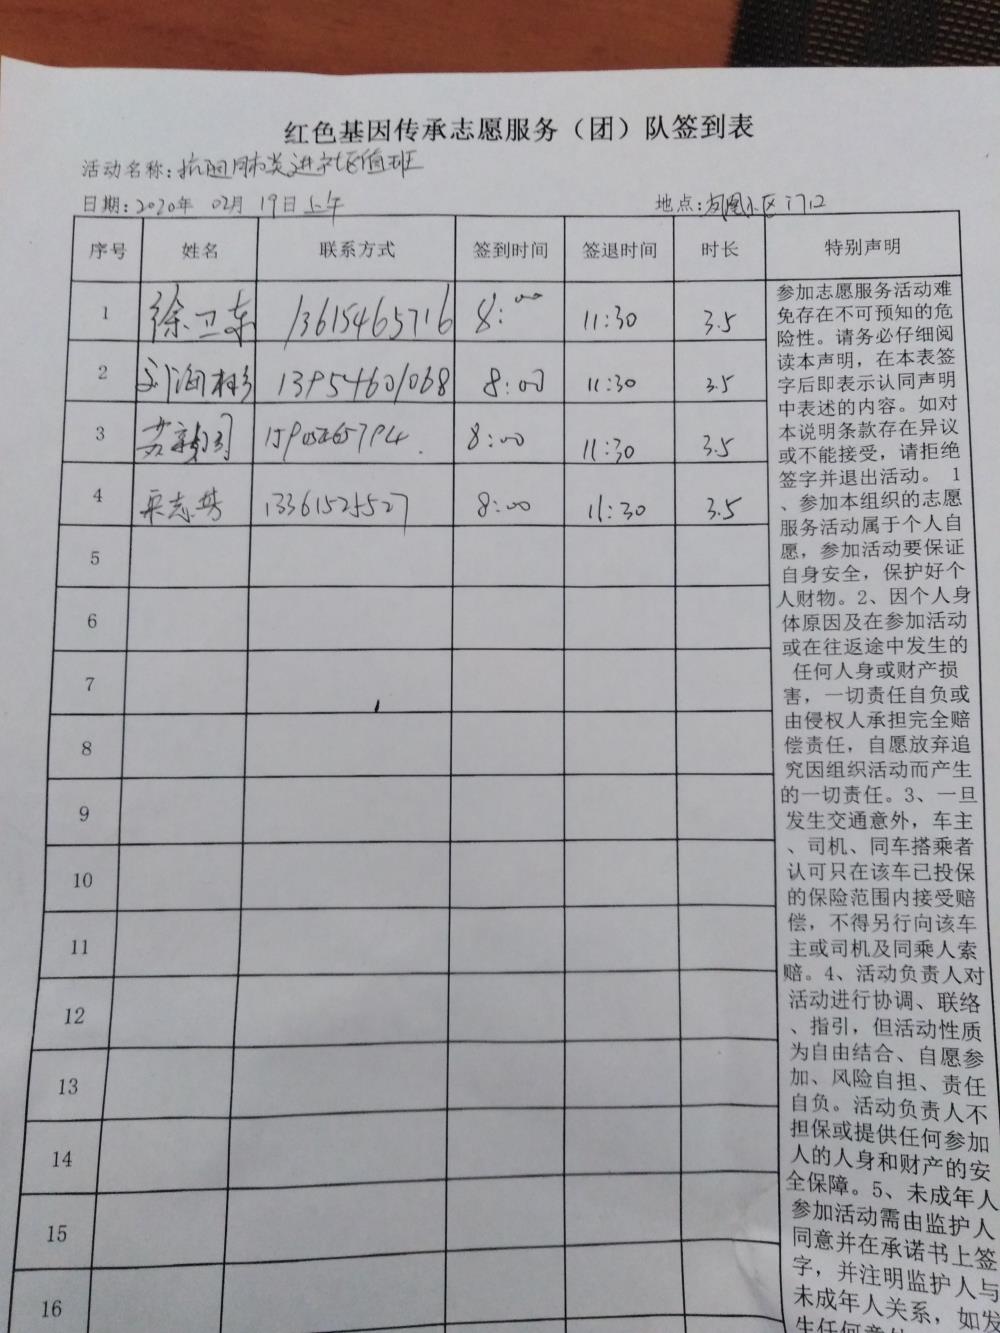 红色基因传承志愿服务（团）队签到表
活动名称：抗阻肺炎进社区值班
日期：2020年 02月 19日上午 地点：凤凰小区门口
序号 姓名 联系方式 签到时间 签退时间 时长 特别声明
1 徐卫东 13615465716 8:00 11:30 3.5
2 刘海彬 13954601068 8:00 11:30 3.5
3 8:00 11:30 3.5
4 13361525527 8:00 11:30 3.5
5
6
7
8
9
10
11
12
13
14
15
16
参加志愿服务活动难
免存在不可预知的危
险性。请务必仔细阅
读本声明，在本表签
字后即表示认同声明
中表述的内容。如对
本说明条款存在异议
或不能接受，请拒绝
签字并退出活动。 1
、参加本组织的志愿
服务活动属于个人自
愿，参加活动要保证
自身安全，保护好个
人财物。2、因个人身
体原因及在参加活动
或在往返途中发生的
任何人身或财产损
害，一切责任自负或
由侵权人承担完全赔
偿责任，自愿放弃追
究因组织活动而产生
的一切责任。3、一旦
发生交通意外，车主
、司机、同车搭乘者
认可只在该车已投保
的保险范围内接受赔
偿，不得另行向该车
主或司机及同乘人索
赔。4、活动负责人对
活动进行协调、联络
、指引，但活动性质
为自由结合、自愿参
加、风险自担、责任
自负。活动负责人不
担保或提供任何参加
人的人身和财产的安
全保障。5、未成年人
参加活动需由监护人
同意并在承诺书上签
字，并注明监护人与
未成年人关系，如发
生任何意外